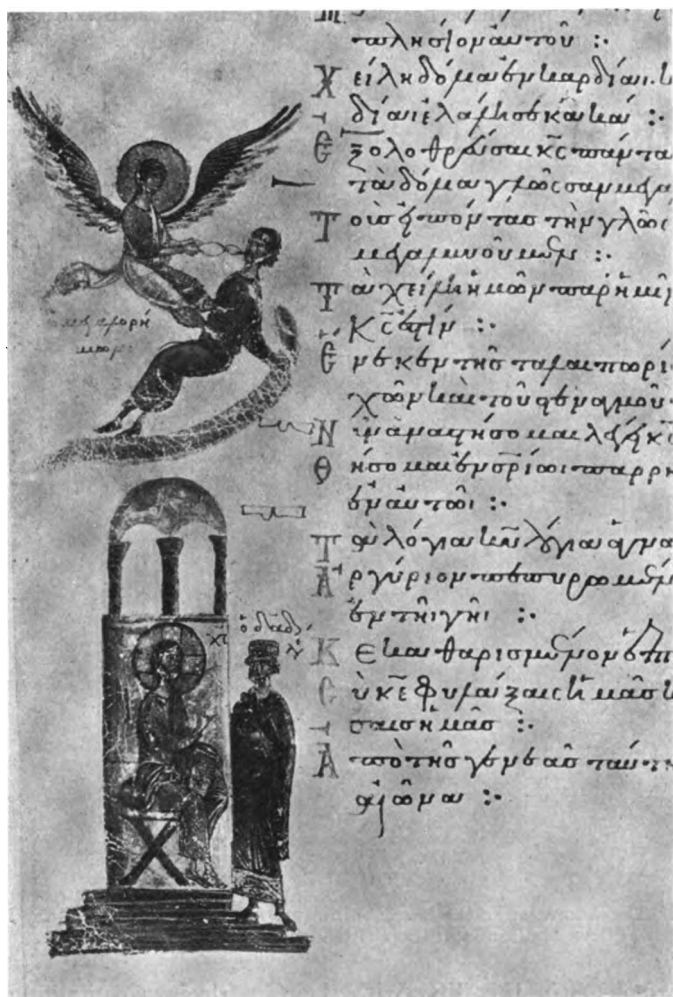 πλησίον αὐτοῦ :·
Χείλη δόλια ἐν καρδίαι κ
δίαι ἐλάλησε κακά :·
Ἐξολοθρεύσαι κ̅ς̅ πάντα
τὰ δόλια γλῶσσαν μεγα
Τοὺς εἰπόντας τὴν γλῶσ
μεγαλυνοῦμεν :·
Τὰ χείλη ἡμῶν παρ ἡμῖ
κ̅ς̅ ἐστίν :·
Ἕνεκεν τῆς ταλαιπωρί
χῶν καὶ τοῦ στεναγμοῦ
Νῦν ἀναστήσομαι λέγει κ̅ς̅
Θήσομαι ἐν σωτηρίωι παρρη
ἐν αὐτῶι :·
Τὰ λόγια κ̅υ̅ λόγια ἁγνα
Ἀργύριον πεπυρωμέν
ἐν τῆι γῆι :·
Κεκαθαρισμένον ἑπ
Σὺ κ̅ε̅ φυλάξαις ἡμᾶς κ
σαις ἡμᾶς :·
Ἀπὸ τῆς γενεᾶς ταύτη
αἰῶνα :·
ὁ δ̅α̅δ̅